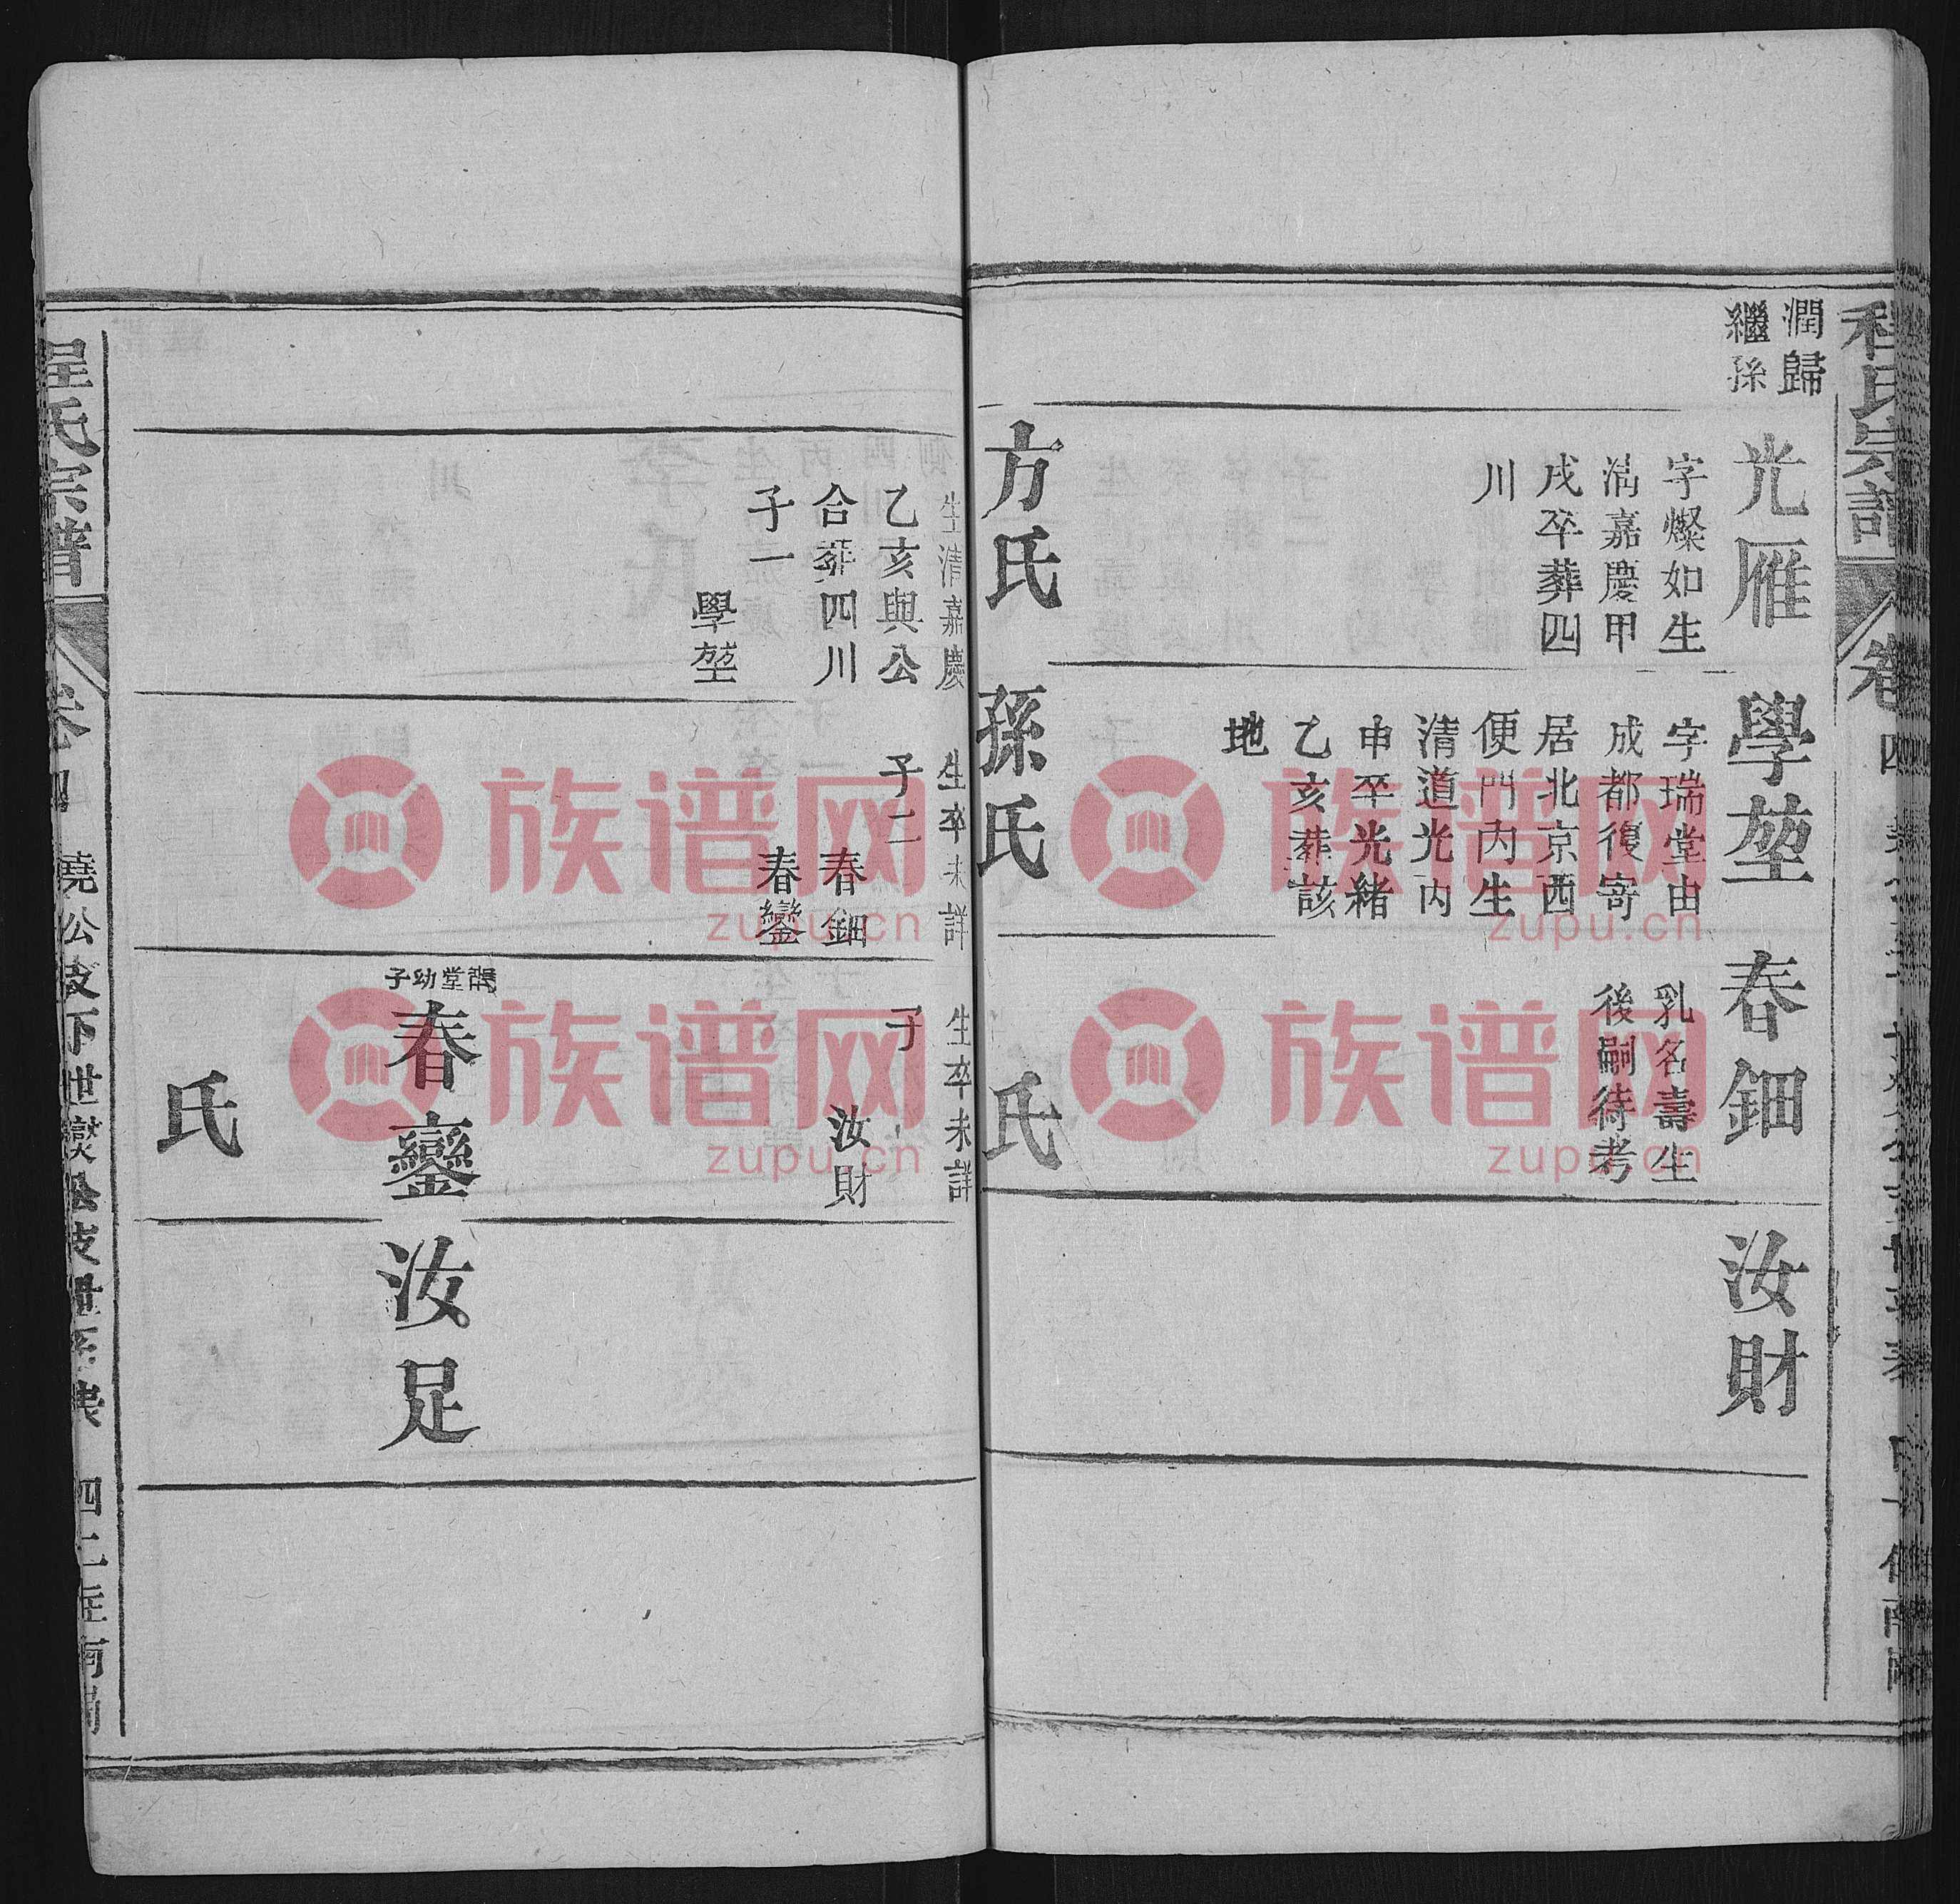 程氏宗譜
卷四
潤歸
繼孫
光雁
字燦如生
清嘉慶甲
戌卒葬四
川
方氏
學堃
字瑞堂由
成都復寄
居北京西
便門內生
清道光丙
申卒光緒
乙亥葬該
地
孫氏
春鈿
乳名壽生
後嗣待考
氏
汝財
生清嘉慶
乙亥與公
合葬四川
子一
學堃
生卒未詳
子二
春鈿
春鑾
生卒未詳
子
汝財
瑞堂幼子
春鑾
氏
汝足
程氏宗譜
卷四
族谱网
zupu.cn
族谱网
zupu.cn
族谱网
zupu.cn
族谱网
zupu.cn